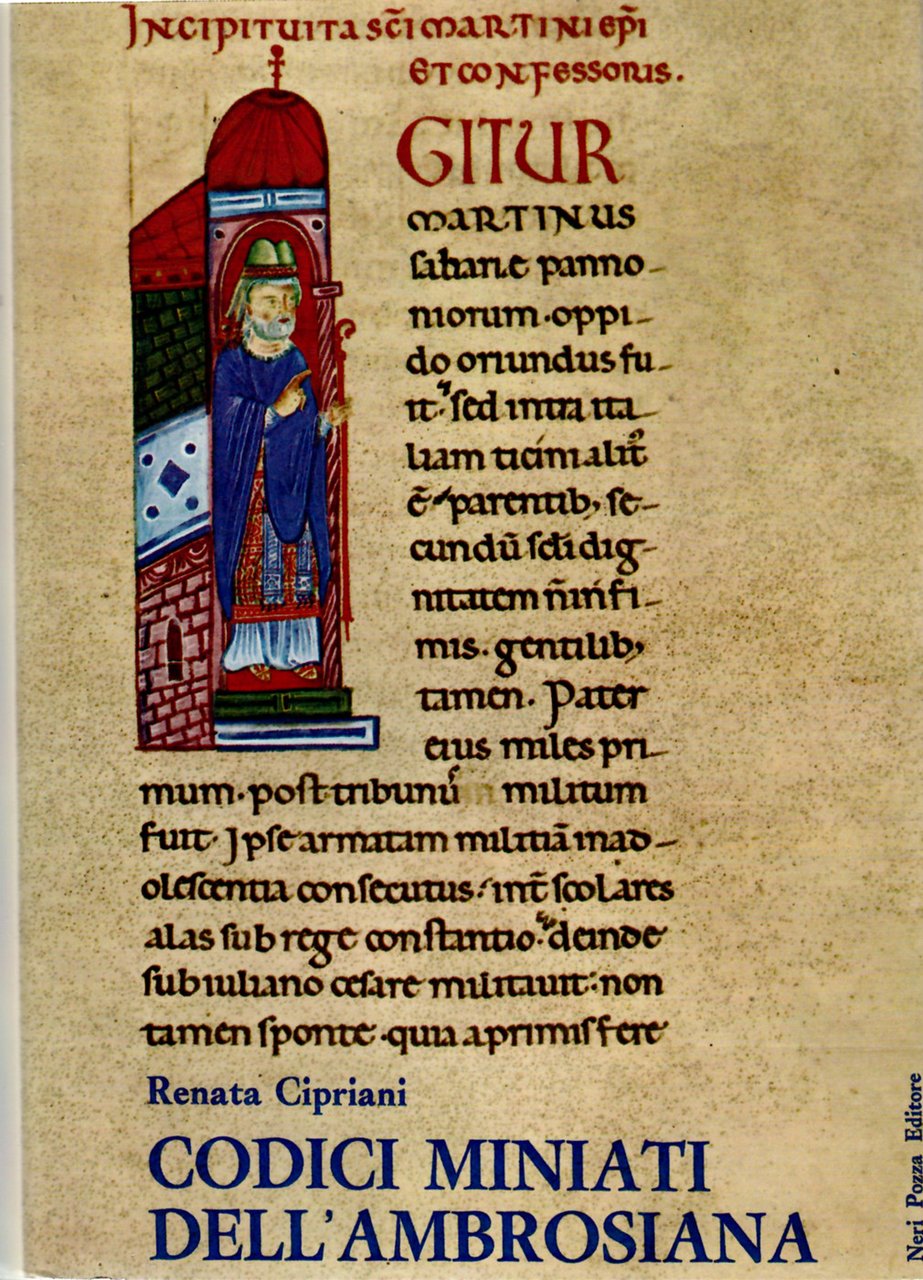 INCIPIT VITA SC̄I MARTINI EP̄I
ET CONFESSORIS.
GITUR
MARTINUS
sabarie panno-
niorum. oppi-
do oriundus fu-
it. sed intra ita-
liam ticini alit᷒
ē parentib, se-
cundū sc̄li dig-
nitatem n̄ infi-
mis. gentilib,
tamen. Pater
eius miles pri-
mum. post tribunus militum
fuit. Ipse armatam militiā in ad-
olescentia consecutus. int̄ scolares
alas sub rege constantio. deinde
sub iuliano cesare militavit. non
tamen sponte. quia a primis fere
Renata Cipriani
CODICI MINIATI
DELL'AMBROSIANA
Neri Pozza Editore